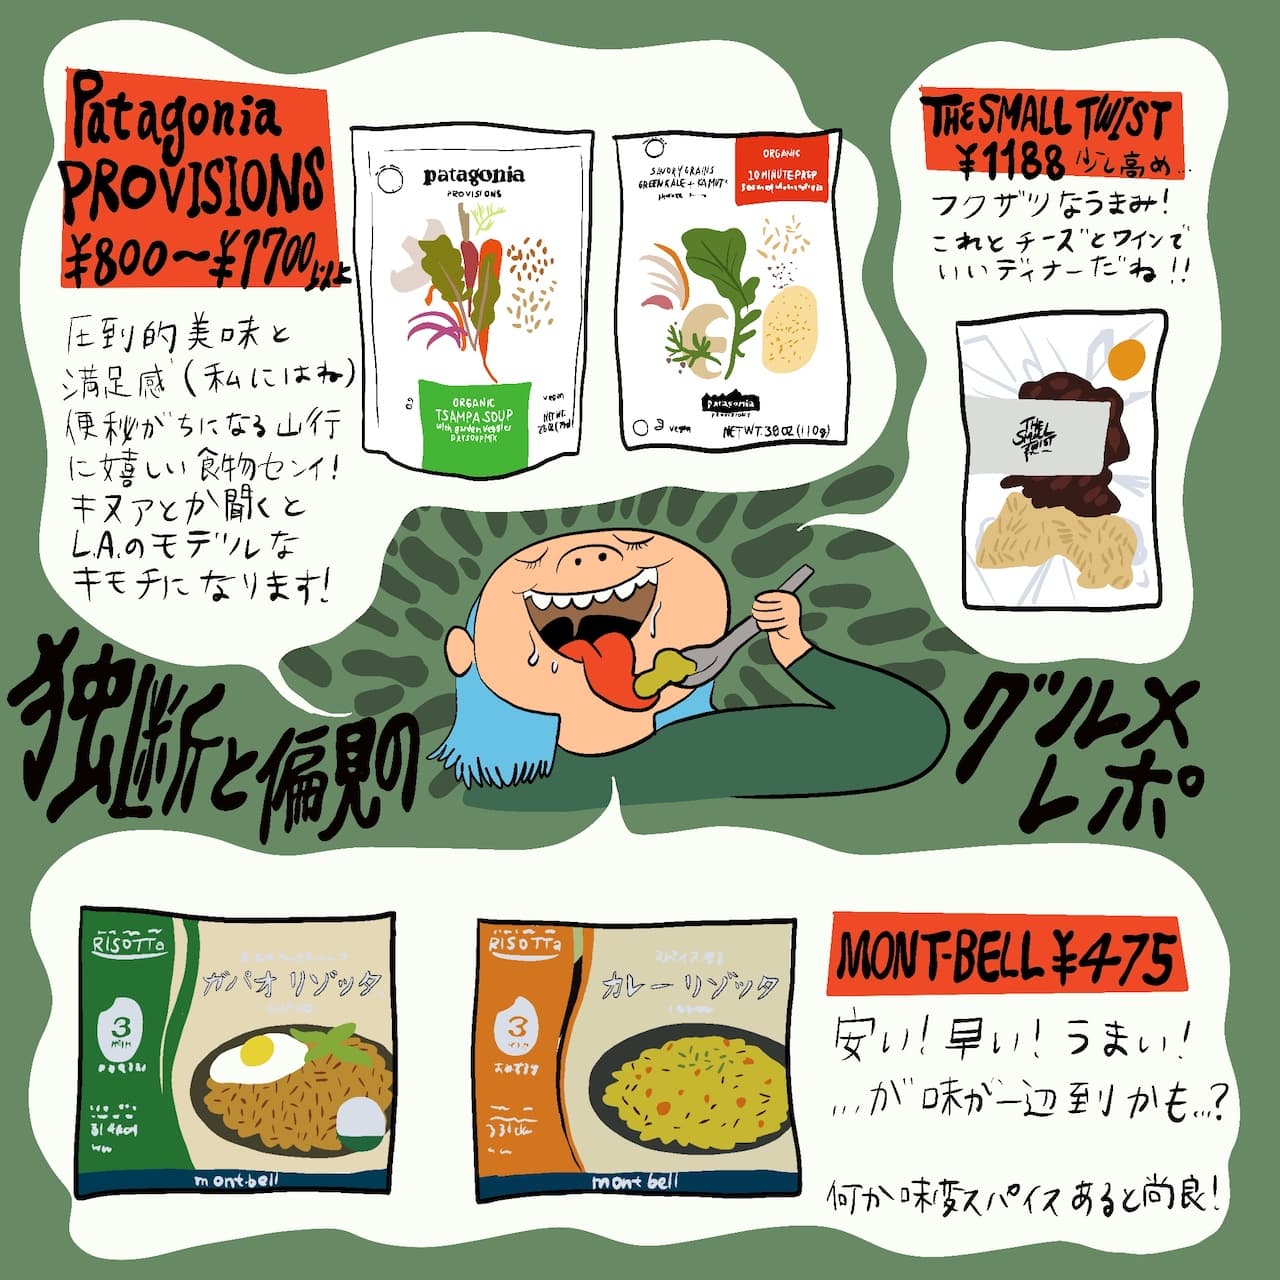 Patagonia
PROVISIONS
¥800〜¥1700以上
圧到的美味と
満足感(私にはね)
便秘がちになる山行
に嬉しい食物センイ!
キヌアとか聞くと
L.A.のモデルな
キモチになります!
patagonia
PROVISIONS
ORGANIC
TSAMPA SOUP
with garden veggies
DRY SOUP MIX
vegan
NET WT.
SAVORY GRAINS
GREEN KALE + KAMUT
ORGANIC
10 MINUTE PREP
patagonia
PROVISIONS
vegan
NET WT. 3.8 OZ (110g)
THE SMALL TWIST
¥1188 少し高め...
フクザツなうまみ!
これとチーズとワインで
いいディナーだね!!
THE
SMALL
TWIST
独断と偏見の
グルメ
レポ
RISOTTa
ガパオリゾッタ
3
min
mont-bell
RISOTTa
カレーリゾッタ
3
mont-bell
MONT-BELL ¥475
安い!早い!うまい!
...が味が一辺到かも...?
何か味変スパイスあると尚良!